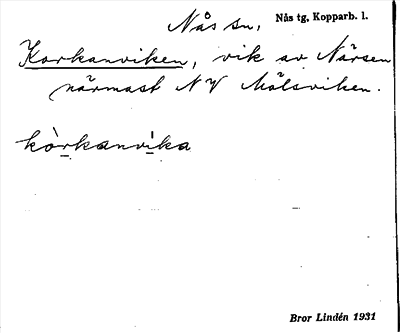 Nås sn. Nås tg, Kopparb. l.
Korkanviken, vik av Närsen
närmast NV Målsviken.
kòrkanvika
Bror Lindén 1931